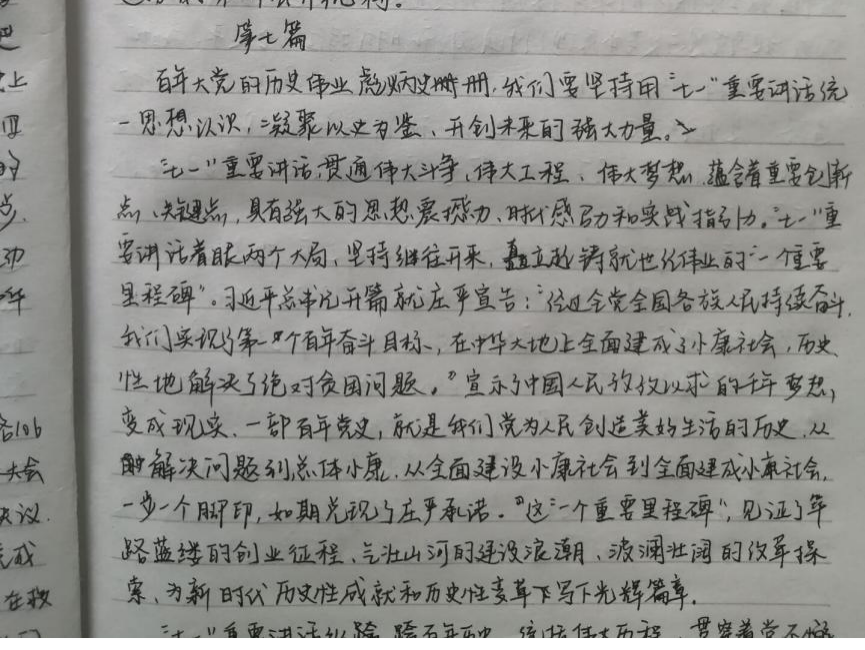 第七篇
百年大党的历史伟业彪炳史册,我们要坚持用"七一"重要讲话统
一思想认识,凝聚以史为鉴、开创未来的强大力量。
"七一"重要讲话,贯通伟大斗争、伟大工程、伟大梦想,蕴含着重要创新
点、关键点,具有强大的思想震撼力、时代感召力和实践指引力。"七一"重
要讲话着眼两个大局,坚持继往开来,矗立起铸就世纪伟业的"一个重要
里程碑"。习近平总书记开篇就庄严宣告:"经过全党全国各族人民持续奋斗,
我们实现了第一个百年奋斗目标,在中华大地上全面建成了小康社会,历史
性地解决了绝对贫困问题。"宣示了中国人民孜孜以求的千年梦想,
变成现实。一部百年党史,就是我们党为人民创造美好生活的历史,从
解决问题到总体小康,从全面建设小康社会到全面建成小康社会,
一步一个脚印,如期兑现了庄严承诺。"这一个重要里程碑",见证了筚
路蓝缕的创业征程、气壮山河的建设浪潮、波澜壮阔的改革探
索、为新时代历史性成就和历史性变革下写下光辉篇章。
"七一"重要讲话
各106
大会
决议
完成
在政